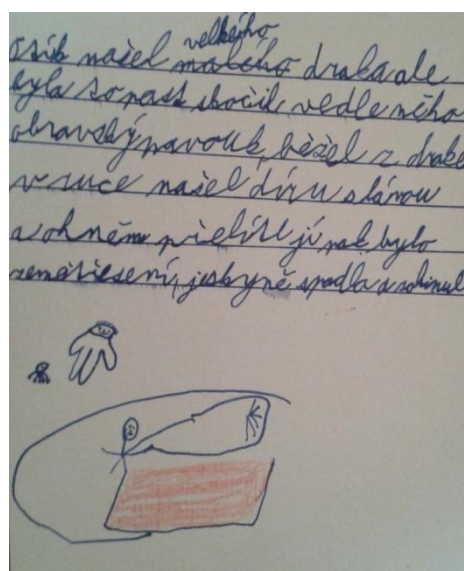 velkého
našel malého draka ale
byla to past skočil vedle něho
obravský pavouk, běžel z drake
v ruce našel díru s lávou
a ohněm jí pak bylo
zemětřesení, jeskyně spadla a